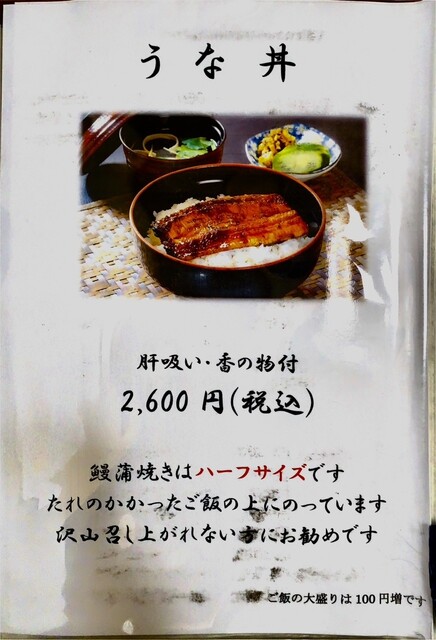 うな丼
肝吸い・香の物付
2,600円(税込)
鰻蒲焼きはハーフサイズです
たれのかかったご飯の上にのっています
沢山召し上がれない方にお勧めです
ご飯の大盛りは100円増です